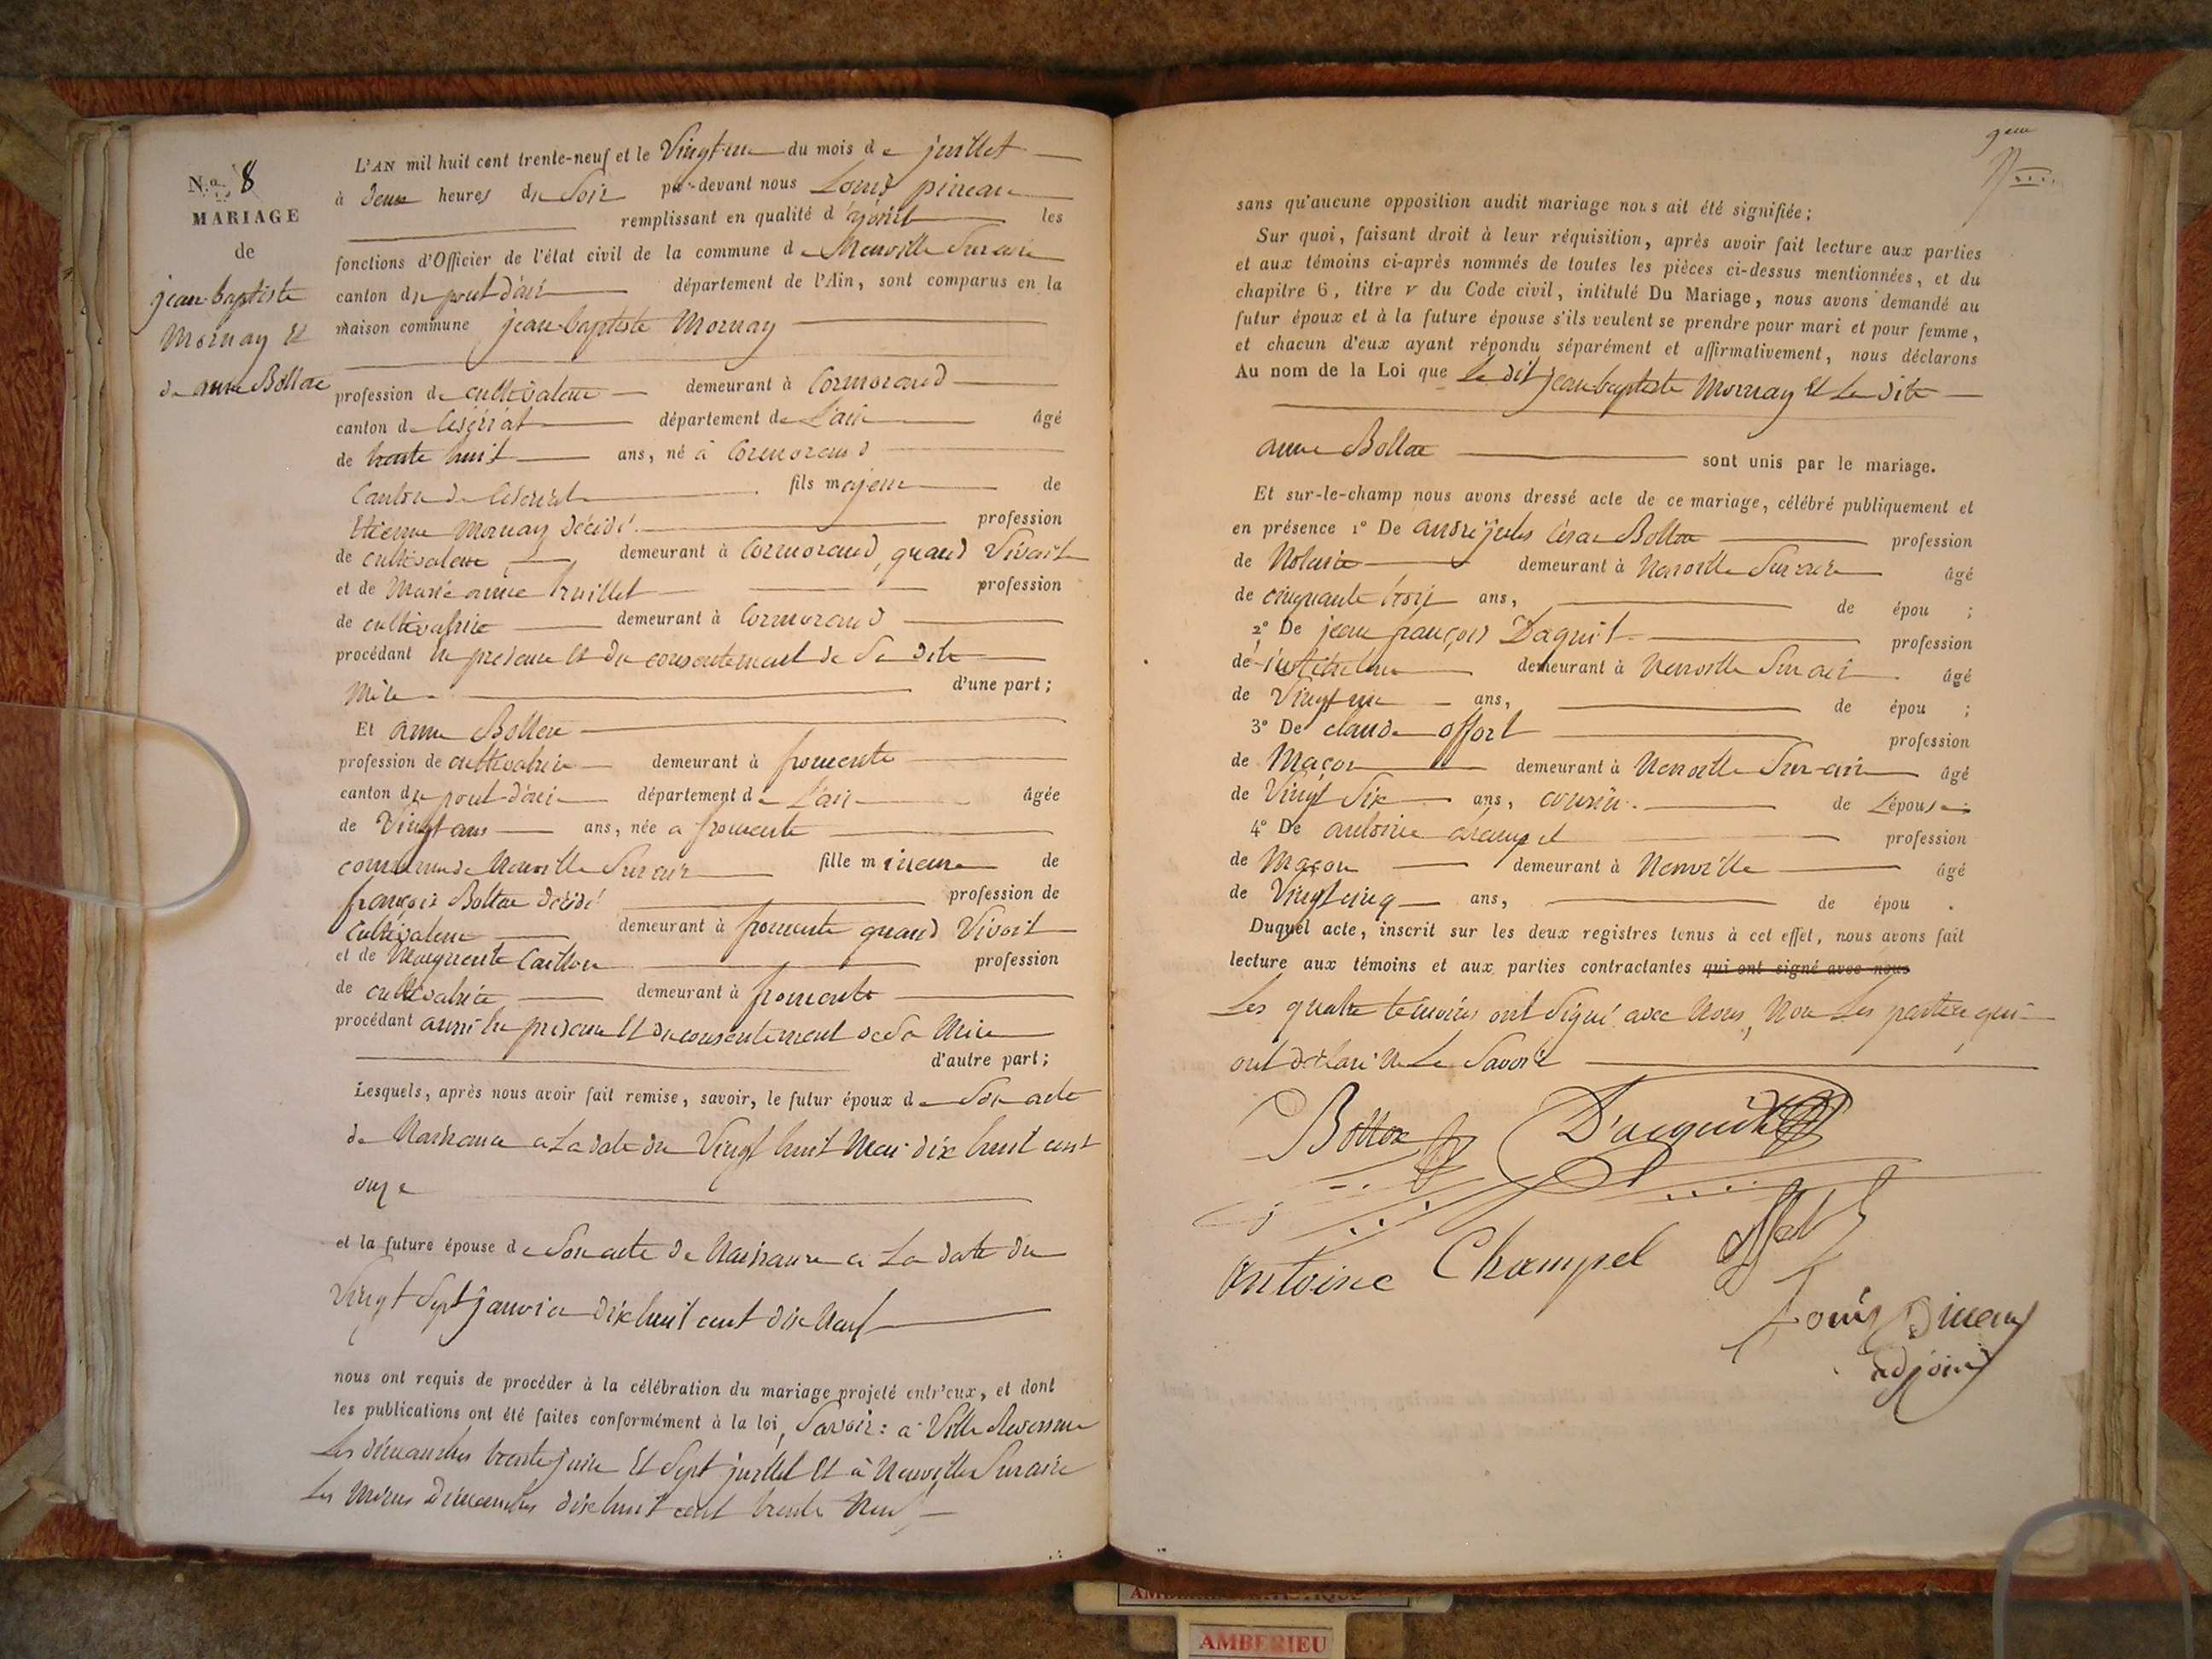 N.o 8
MARIAGE
de
jean-baptiste
Mornay et
de anne Bollac
L'AN mil huit cent trente-neuf et le Vingt-un du mois de juillet
à deux heures du Soir par-devant nous Louis pineau
remplissant en qualité d'ajoint les
fonctions d'Officier de l'état civil de la commune de Neuville Sur ain
canton du pont-d'ain département de l'Ain, sont comparus en la
maison commune jean-baptiste Mornay
profession de cultivateur demeurant à Cormorand
canton de département de L'ain âgé
de trente huit ans, né à Cormorand
Canton de fils majeur de
Etienne Mornay décédé profession
de cultivateur demeurant à Cormorand, quand Vivait
et de Marie anne truillet profession
de cultivatrice demeurant à Cormorand
procédant en presence et du consentement de Sa dite
Mère d'une part;
Et anne Bollac
profession de cultivatrice demeurant à fromente
canton du pont-d'ain département de L'ain âgée
de Vingt ans ans, née a fromente
commune de Neuville Sur ain fille mineure de
françois Bollac décédé profession de
Cultivateur demeurant à fromente quand Vivait
et de Marguerite profession
de cultivatrice demeurant à fromente
procédant aussi en presence et du consentement de Sa Mère
d'autre part;
Lesquels, après nous avoir fait remise, savoir, le futur époux de Son acte
de Naissance a La date du Vingt huit Mai dix huit cent
onze
et la future épouse de Son acte de Naissance a La date du
Vingt Sept janvier dix huit cent dix Neuf
nous ont requis de procéder à la célébration du mariage projeté entr'eux, et dont
les publications ont été faites conformément à la loi, Savoir: a Ville Reversure
Les dimanches trente juin et Sept juillet et à Neuville Sur ain
Les Mêmes dimanches dix huit cent trente Neuf
sans qu'aucune opposition audit mariage nous ait été signifiée;
Sur quoi, faisant droit à leur réquisition, après avoir fait lecture aux parties
et aux témoins ci-après nommés de toutes les pièces ci-dessus mentionnées, et du
chapitre 6, titre v du Code civil, intitulé Du Mariage, nous avons demandé au
futur époux et à la future épouse s'ils veulent se prendre pour mari et pour femme,
et chacun d'eux ayant répondu séparément et affirmativement, nous déclarons
Au nom de la Loi que Le dit jean-baptiste Mornay et La dite
anne Bollac sont unis par le mariage.
Et sur-le-champ nous avons dressé acte de ce mariage, célébré publiquement et
en présence 1o De andré jules César Bollac profession
de Notaire demeurant à Neuville Sur ain âgé
de cinquante trois ans, de épou ;
2o De jean françois Daguit profession
de instituteur demeurant à Neuville Sur ain âgé
de Vingt un ans, de épou ;
3o De claude offort profession
de Maçon demeurant à Neuville Sur-ain âgé
de Vingt Six ans, cousin de L'épouse;
4o De antoine champel profession
de Maçon demeurant à Neuville âgé
de Vingt cinq ans, de épou .
Duquel acte, inscrit sur les deux registres tenus à cet effet, nous avons fait
lecture aux témoins et aux parties contractantes qui ont signé avec nous
Les quatre témoins ont Signé avec Nous, Non Les parties qui
ont déclaré Ne Le Savoir
Bollac
Antoine Champel
Louis Pineau
adjoint
AMBERIEU